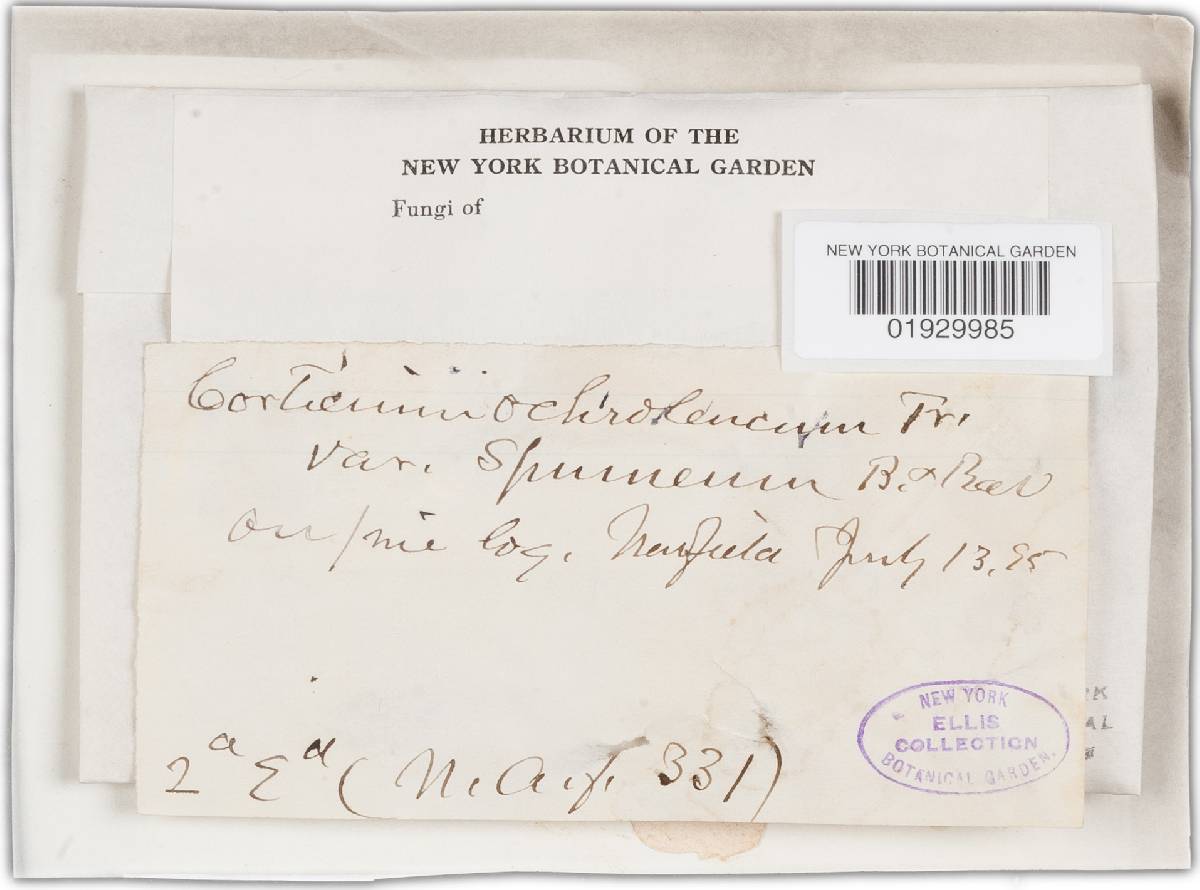 HERBARIUM OF THE
NEW YORK BOTANICAL GARDEN
Fungi of
NEW YORK BOTANICAL GARDEN
01929985
Corticium ochroleucum Fr.
var. Spumeum B. & Rav
on pine log. Newfield July 13, 95
2a Ed (N. A. f. 331)
NEW YORK
ELLIS
COLLECTION
BOTANICAL GARDEN.